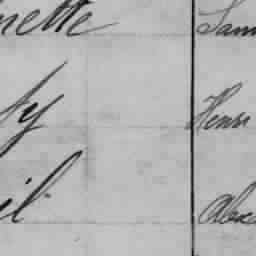 nette Sam
ty Henri
il Alex